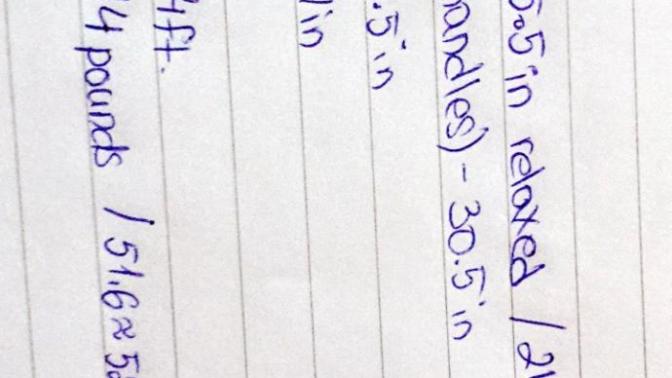 5.5 in relaxed / 2
andles) - 30.5 in
.5 in
in
4ft.
4 pounds / 51.6 ≈ 5